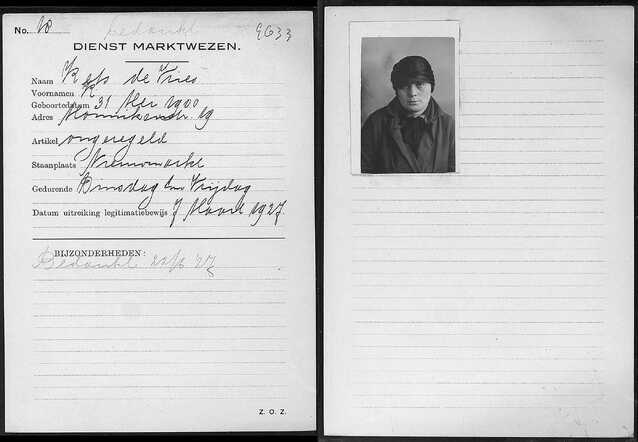 No. 10 bedankt 9633
DIENST MARKTWEZEN.
Naam de Vries
Voornamen
Geboortedatum 31 Mei 1900
Adres 19
Artikel ongeregeld
Staanplaats
Gedurende Dinsdag t/m Vrijdag
Datum uitreiking legitimatiebewijs 7 Maart 1927.
BIJZONDERHEDEN:
Bedankt 27
Z. O. Z.